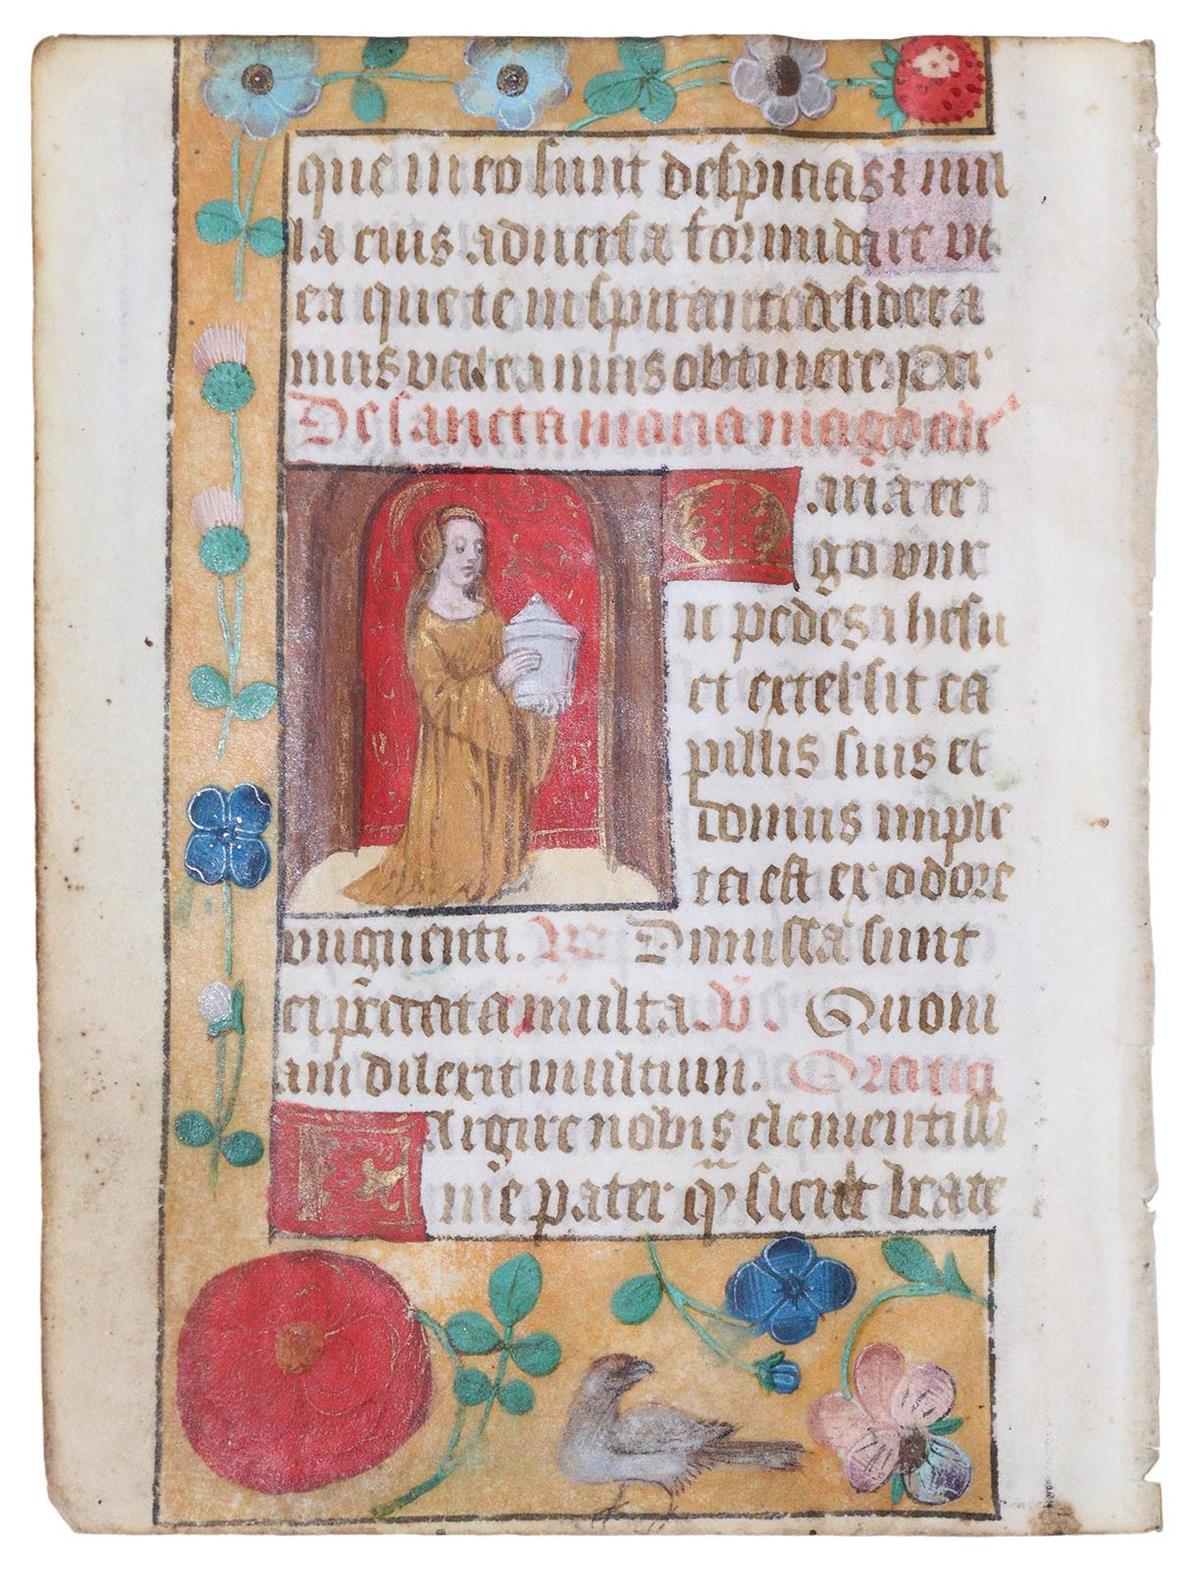 que in eo sunt despicias ⁊ nul
la eius aduersa formidare vt
ea que te inspirante desidera
mus valeamus obtinere. p dn̄
De sancta maria magdale
Maria er
go vnx
it pedes ihesu
et extersit ca
pillis suis et
domus imple
ta est ex odore
vnguenti. R̃ Dimissa sunt
ei p̄ccata multa. v̄. Quoni
am dilexit multum. Oratio
Largire nobis clementissi
me pater qͥ sicut beate